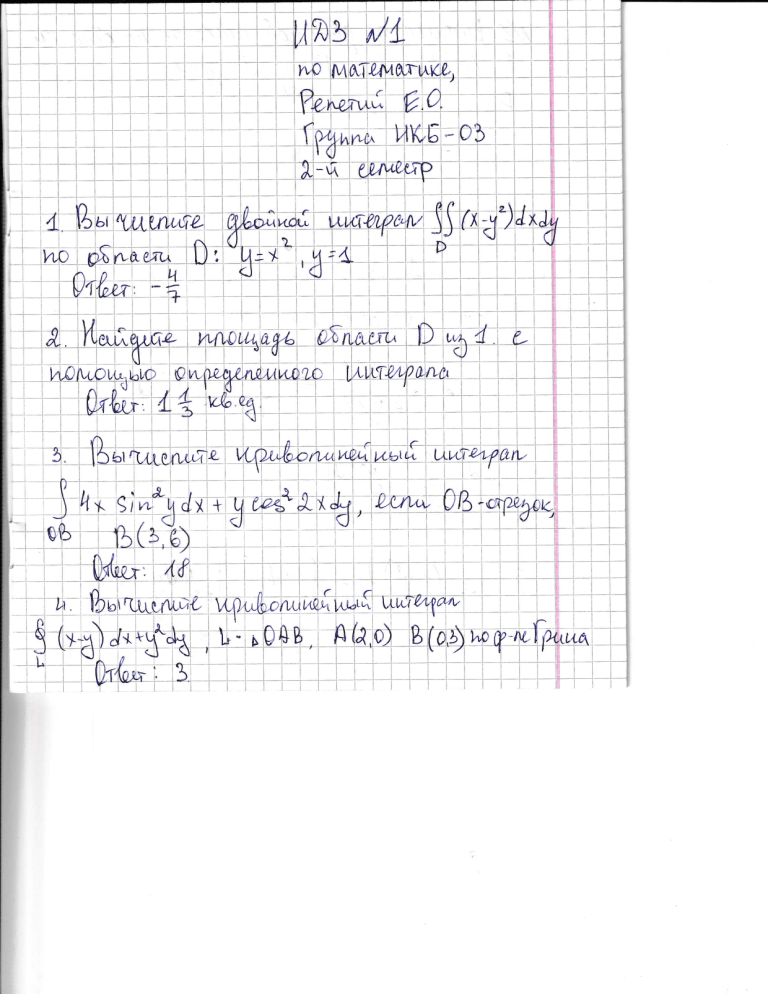 ИДЗ №1
по математике,
Репетий Е.О.
Группа ИКБ-03
2-й семестр
1. Вычислите двойной интеграл ∬(x-y²)dxdy
D
по области D: y=x², y=1
Ответ: -4/7
2. Найдите площадь области D из 1. с
помощью определенного интеграла
Ответ: 1 1/3 кв.ед.
3. Вычислите криволинейный интеграл
∫ 4x sin²y dx + y cos²2x dy, если OB-отрезок,
OB B(3,6)
Ответ: 18
4. Вычислите криволинейный интеграл
∮ (x-y) dx+y²dy, L-△OAB, A(2,0) B(0,3) по ф-ле Грина
L
Ответ: 3